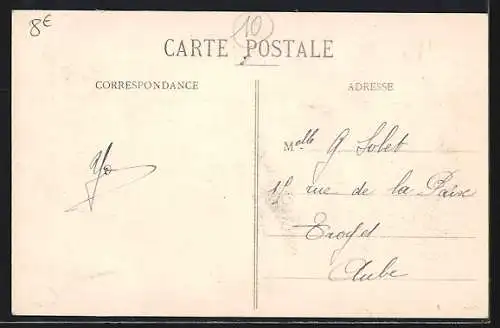 8€
10
CARTE POSTALE
CORRESPONDANCE
ADRESSE
Melle G Solet
15 rue de la Paix
Troyes
Aube